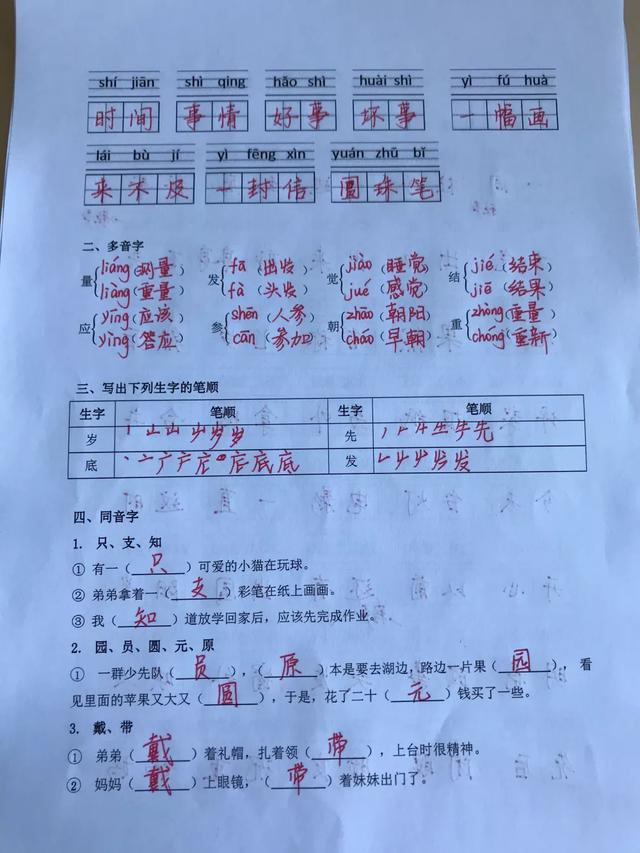 shí jiān shì qing hǎo shì huài shì yì fú huà
时间 事情 好事 坏事 一幅画
lái bù jí yì fēng xìn yuán zhū bǐ
来不及 一封信 圆珠笔
二、多音字
量 liáng (测量) 发 fā (出发) 觉 jiào (睡觉) 结 jié (结束)
liàng (重量) fà (头发) jué (感觉) jiē (结果)
应 yīng (应该) 参 shēn (人参) 朝 zhāo (朝阳) 重 zhòng (重量)
yìng (答应) cān (参加) cháo (早朝) chóng (重新)
三、写出下列生字的笔顺
生字 笔顺 生字 笔顺
岁 先
底 发
四、同音字
1. 只、支、知
① 有一( 只 )可爱的小猫在玩球。
② 弟弟拿着一( 支 )彩笔在纸上画画。
③ 我( 知 )道放学回家后，应该先完成作业。
2. 园、员、圆、元、原
① 一群少先队( 员 )，( 原 )本是要去湖边，路边一片果( 园 )，看
见里面的苹果又大又( 圆 )，于是，花了二十( 元 )钱买了一些。
3. 戴、带
① 弟弟( 戴 )着礼帽，扎着领( 带 )，上台时很精神。
② 妈妈( 戴 )上眼镜，( 带 )着妹妹出门了。